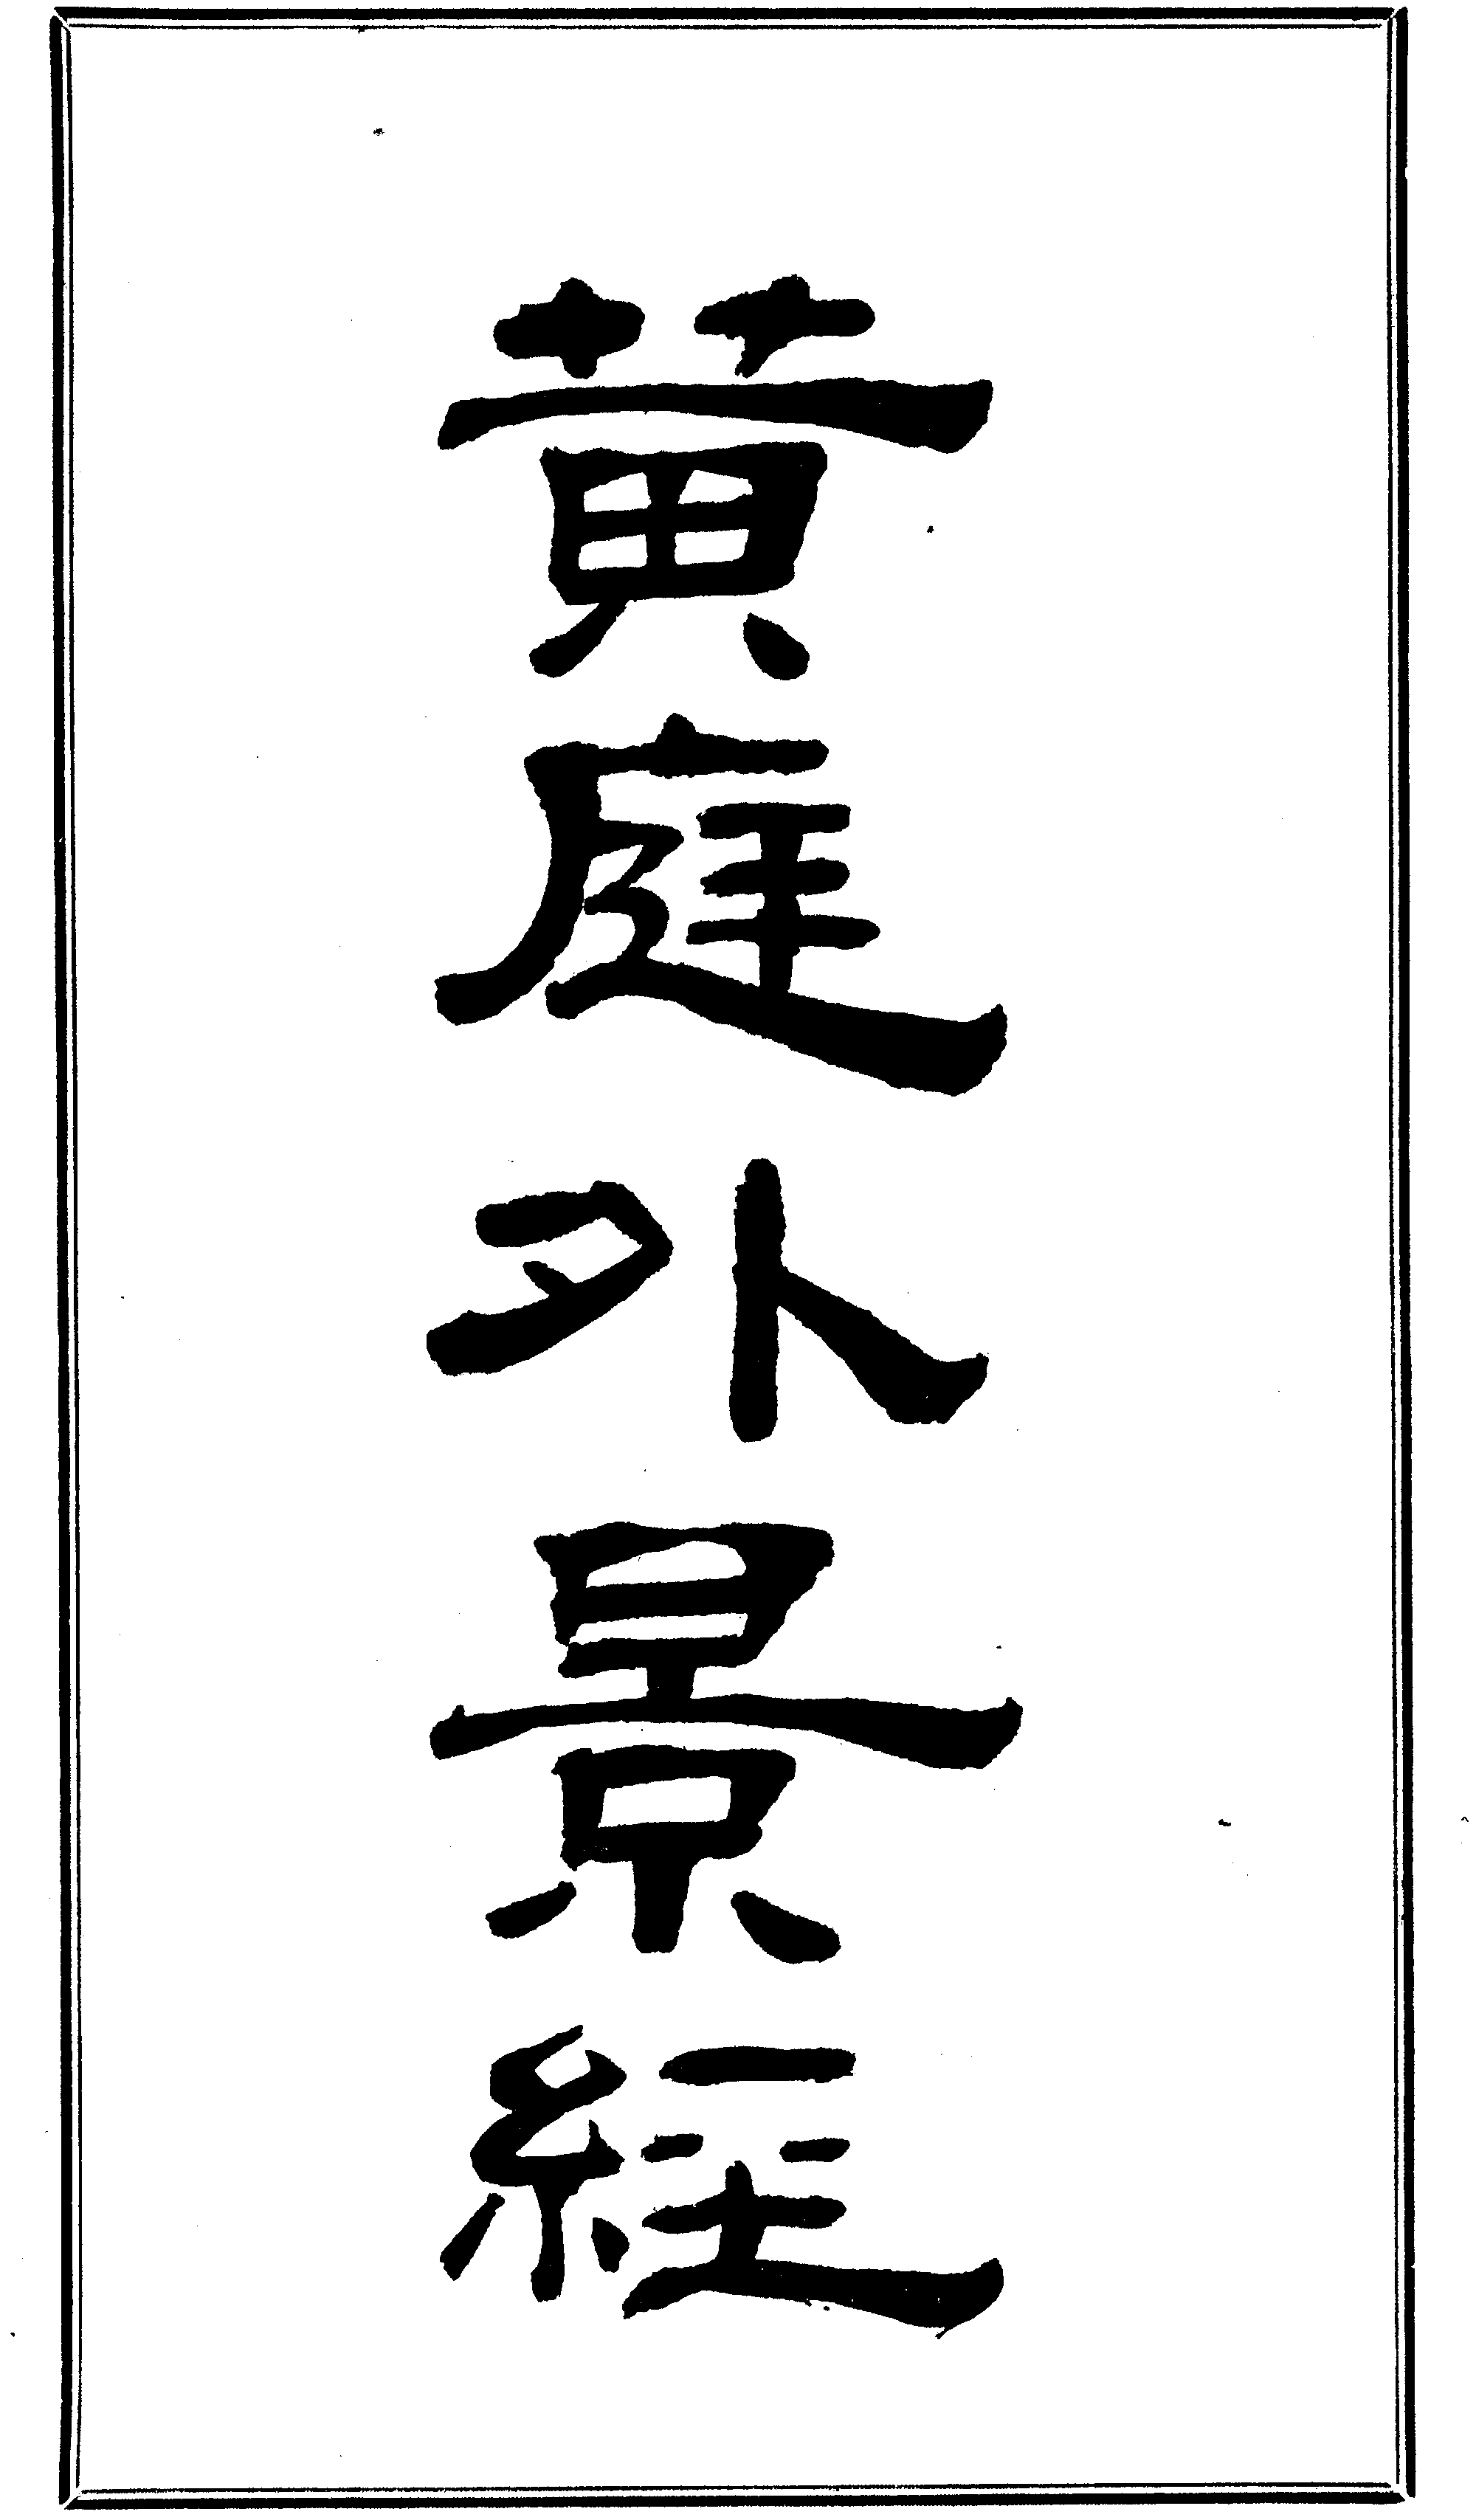 黃庭外景經